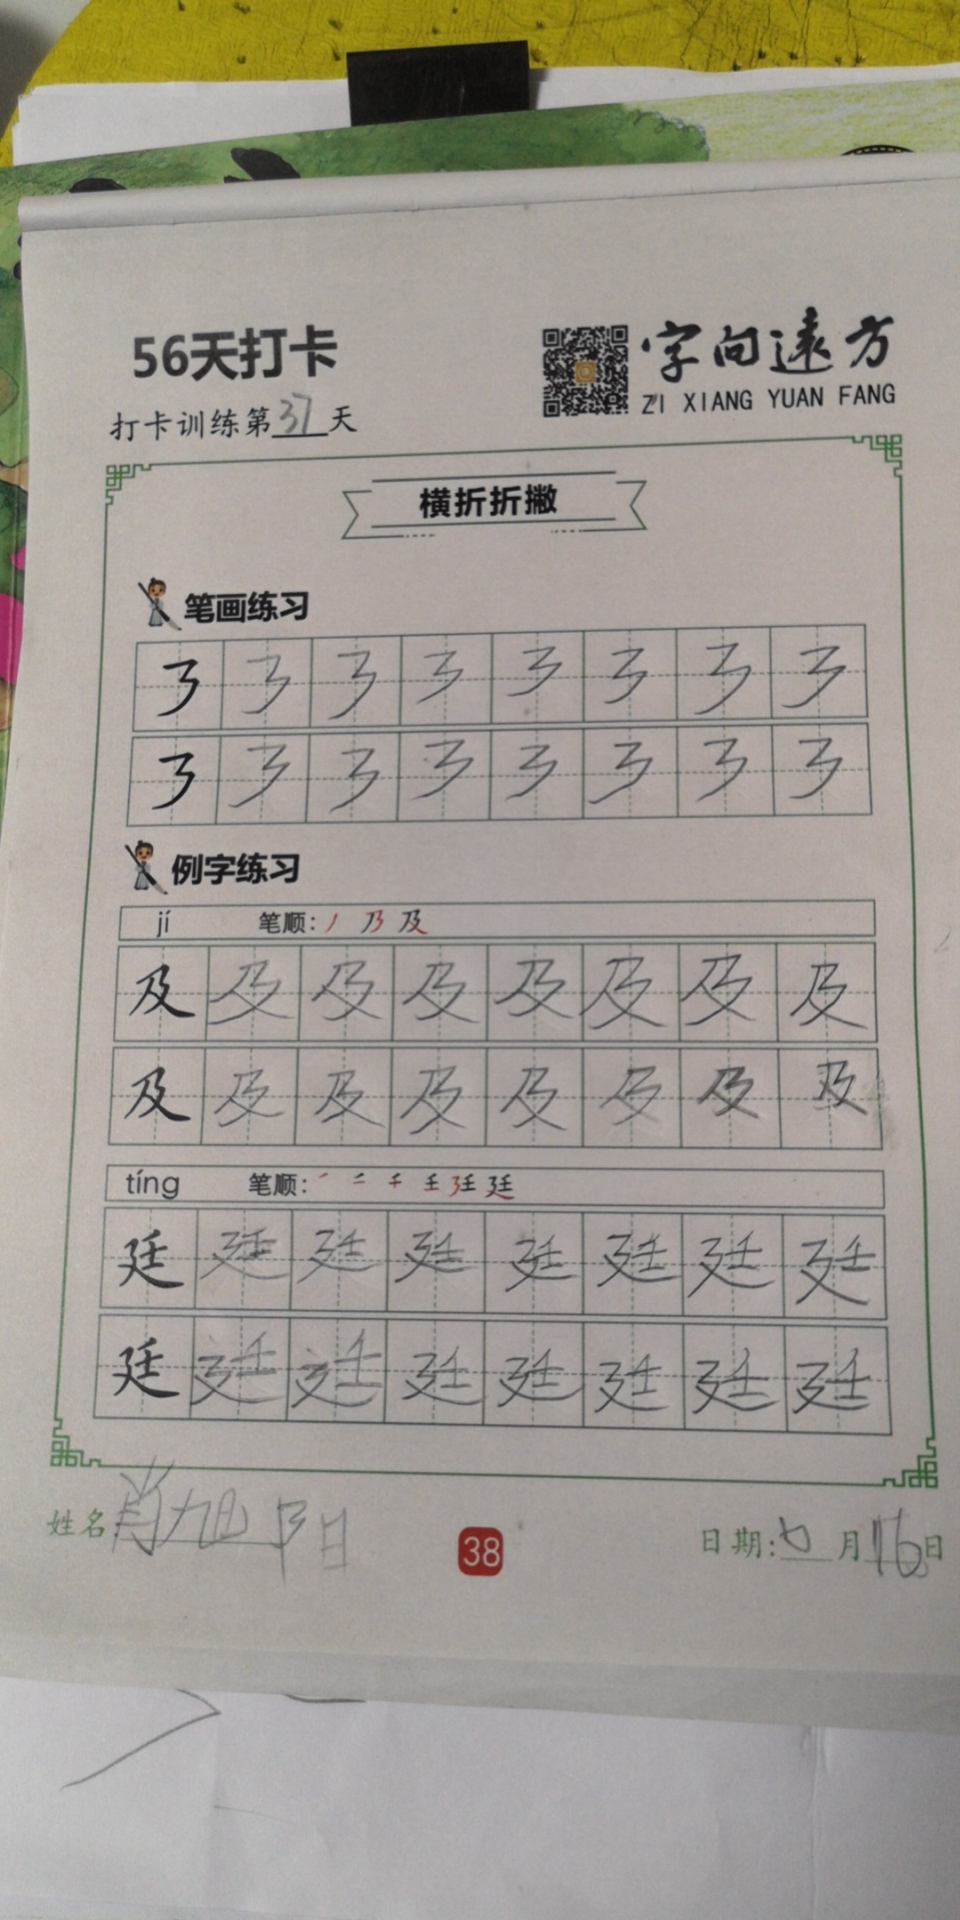 56天打卡
字向远方
ZI XIANG YUAN FANG
打卡训练第37天
横折折撇
笔画练习
例字练习
jí 笔顺: 丿 乃 及
及 及 及 及 及 及 及 及
及 及 及 及 及 及 及 及
tíng 笔顺: 廷
廷 廷 廷 廷 廷 廷 廷 廷
廷 廷 廷 廷 廷 廷 廷 廷
姓名:肖旭阳
38
日期: 月16日